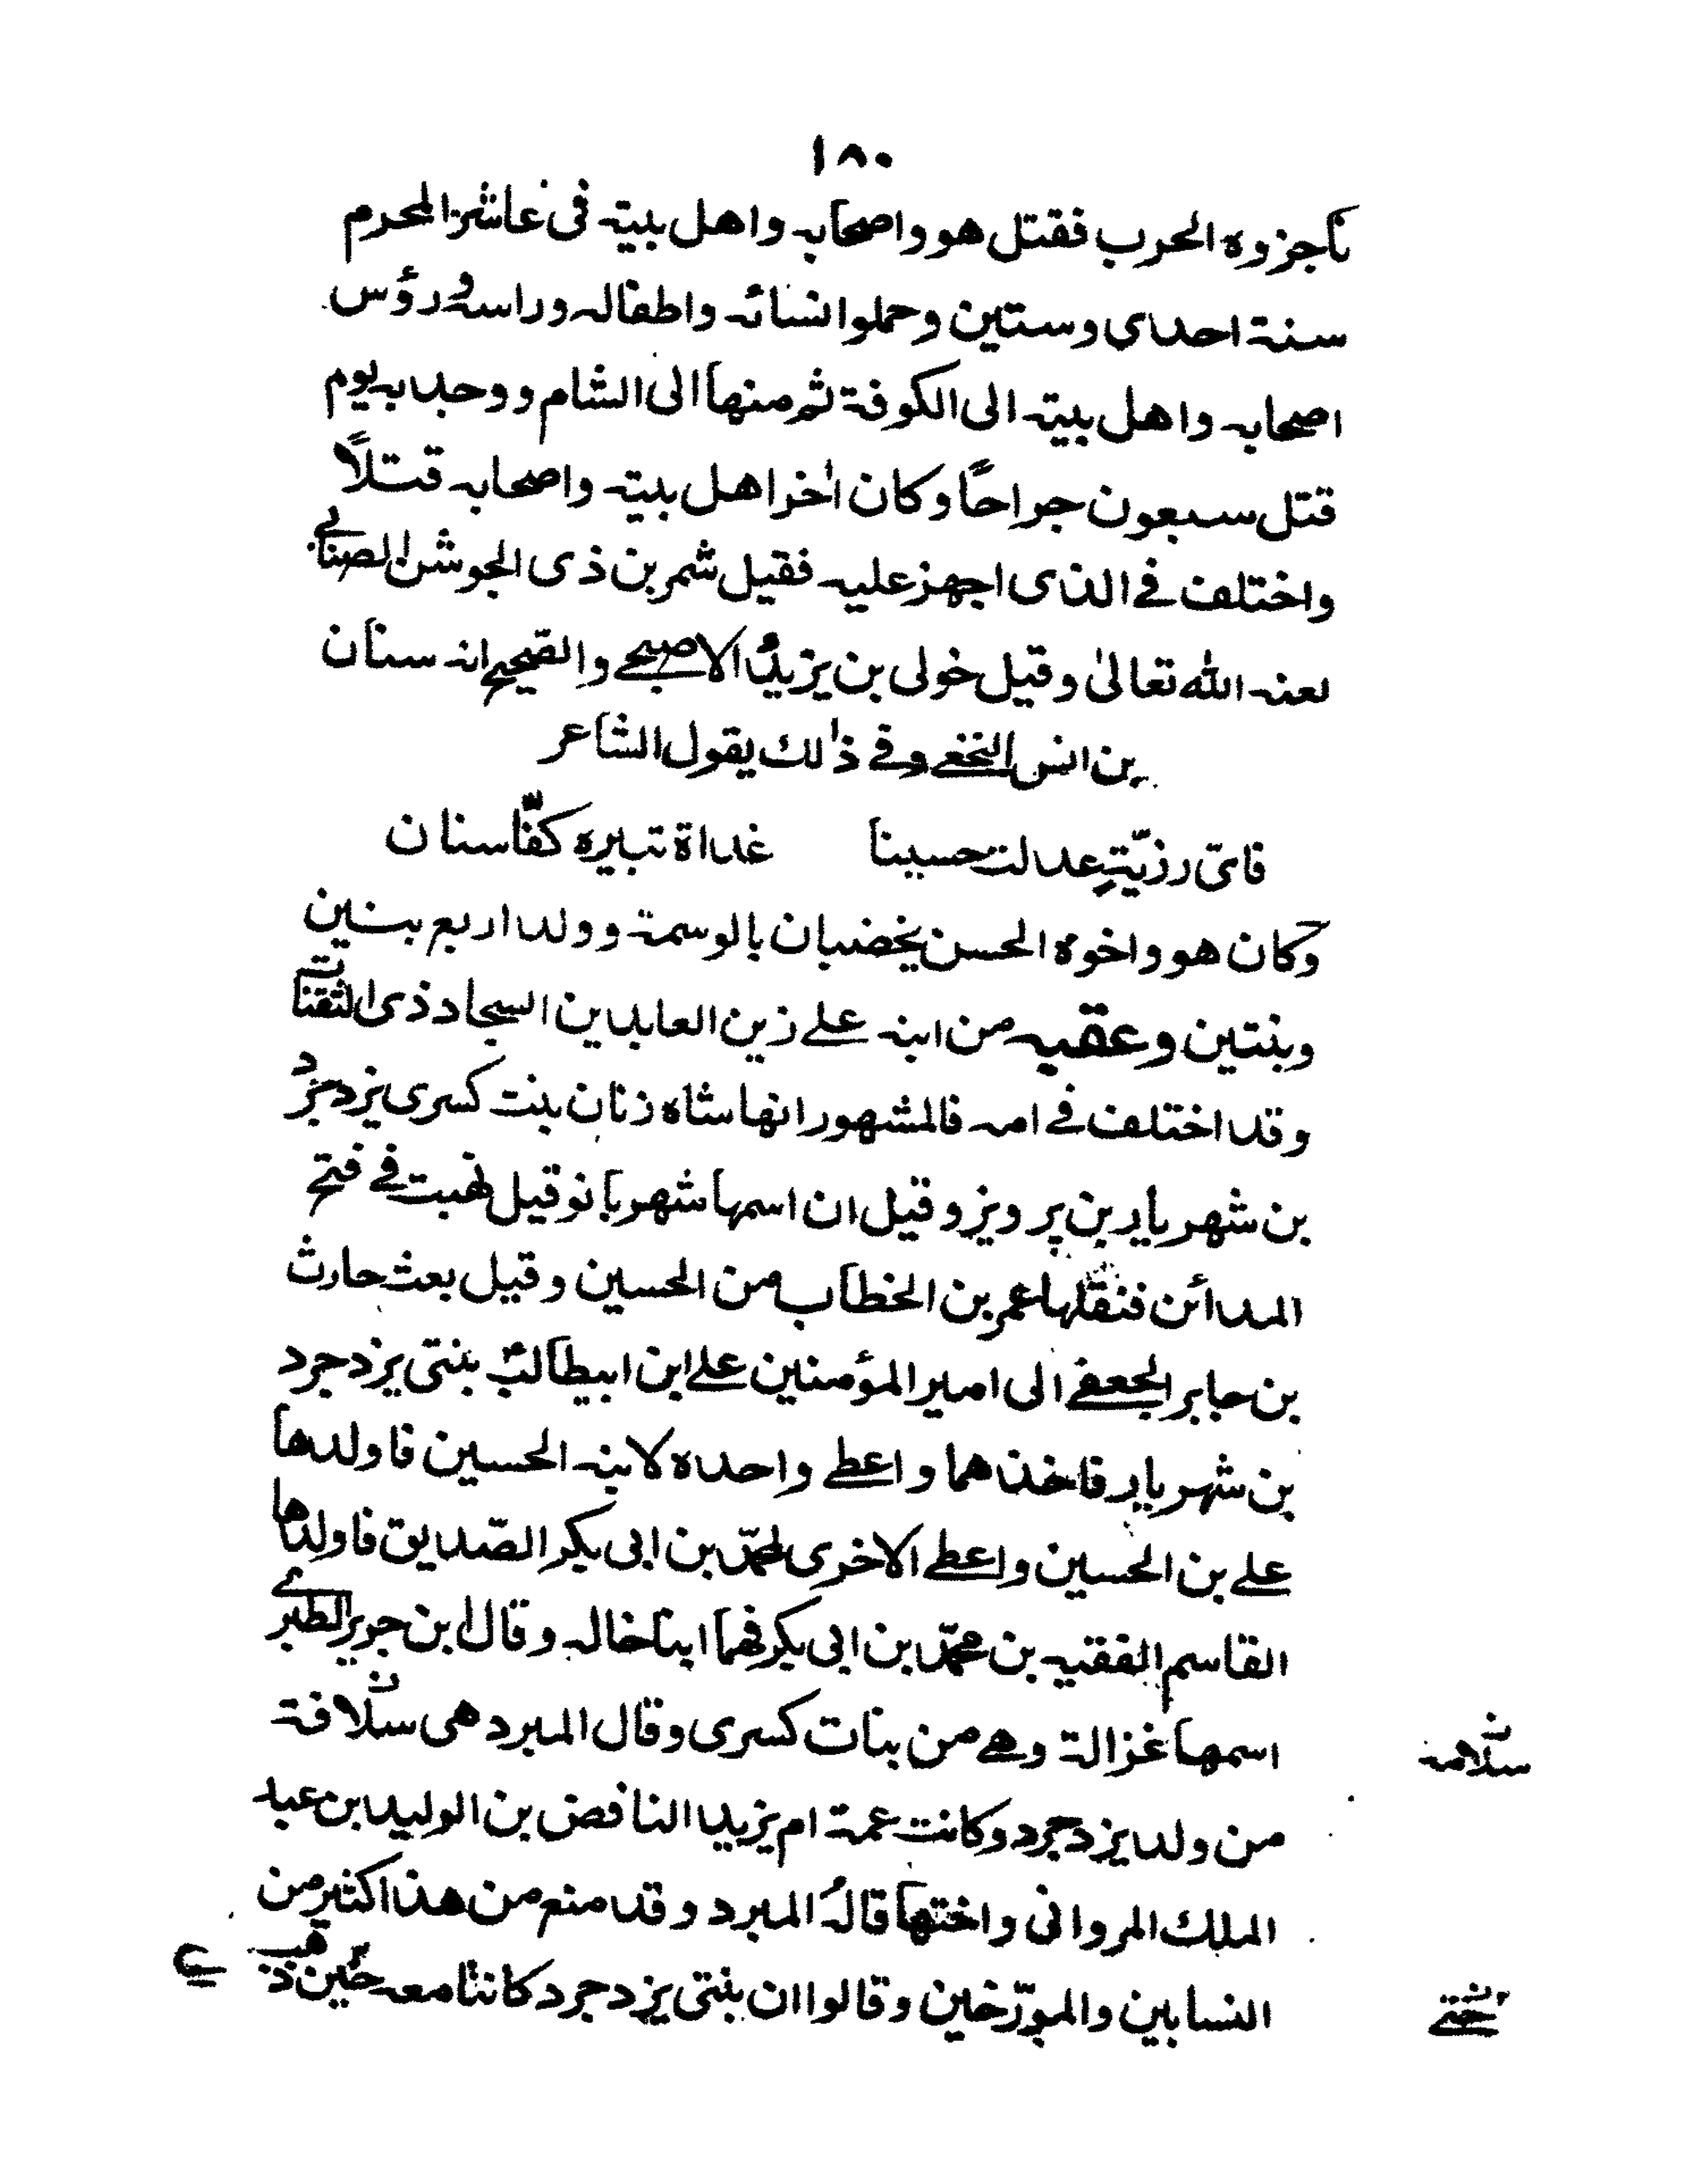 ١٨٠
ناجزوه الحرب فقتل هو واصحابه واهل بيته فى عاشر المحرم
سنة احدى وستين وحملوا نسائه واطفاله وراسه ورؤس
اصحابه واهل بيته الى الكوفة ثم منها الى الشام ووجد به يوم
قتل سبعون جراحاً وكان اٰخر اهل بيته واصحابه قتلاً
واختلف فے الذى اجهز عليه فقيل شمر بن ذى الجوشن الضبابے
لعنه الله تعالىٰ وقيل خولى بن يزيد الاصبحے والصحيح انه سنان
بن انس النخعے وفے ذٰلك يقول الشاعر
فاىّ رزيّةٍ عدلت حسينا غداة تبيره كفّا سنان
وكان هو واخوه الحسن يخضبان بالوسمة وولد اربع بنين
وبنتين وعقبه من ابنه علے زين العابدين السجاد ذى الثفنات
وقد اختلف فے امه فالمشهور انها شاه زنان بنت كسرى يزدجرد
بن شهريار بن پرويز وقيل ان اسمها شهر بانو قيل نهبت فے فتح
المدائن فنفّلها عمر بن الخطاب من الحسين وقيل بعث حارث
بن جابر الجعفے الى امير المؤمنين علے ابن ابيطالبؑ بنتى يزدجرد
بن شهريار فاخذهما واعطے واحده لابنه الحسين فاولدها
علے بن الحسين واعطے الاخرى لمحمّد بن ابى بكر الصّديق فاولدها
القاسم الفقيه بن محمّد بن ابى بكر فهما ابنا خاله وقال ابن جرير الطبرے
اسمها غزالة وهے من بنات كسرى وقال المبرد هى سلافة
سلامه
من ولد يزدجرد وكانت عمة ام يزيد الناقص بن الوليد بن عبد
الملك المروانى واختها قاله المبرد وقد منع من هذا كثير من
النسابين والمورّخين وقالوا ان بنتى يزدجرد كانتا معه حين ذهب